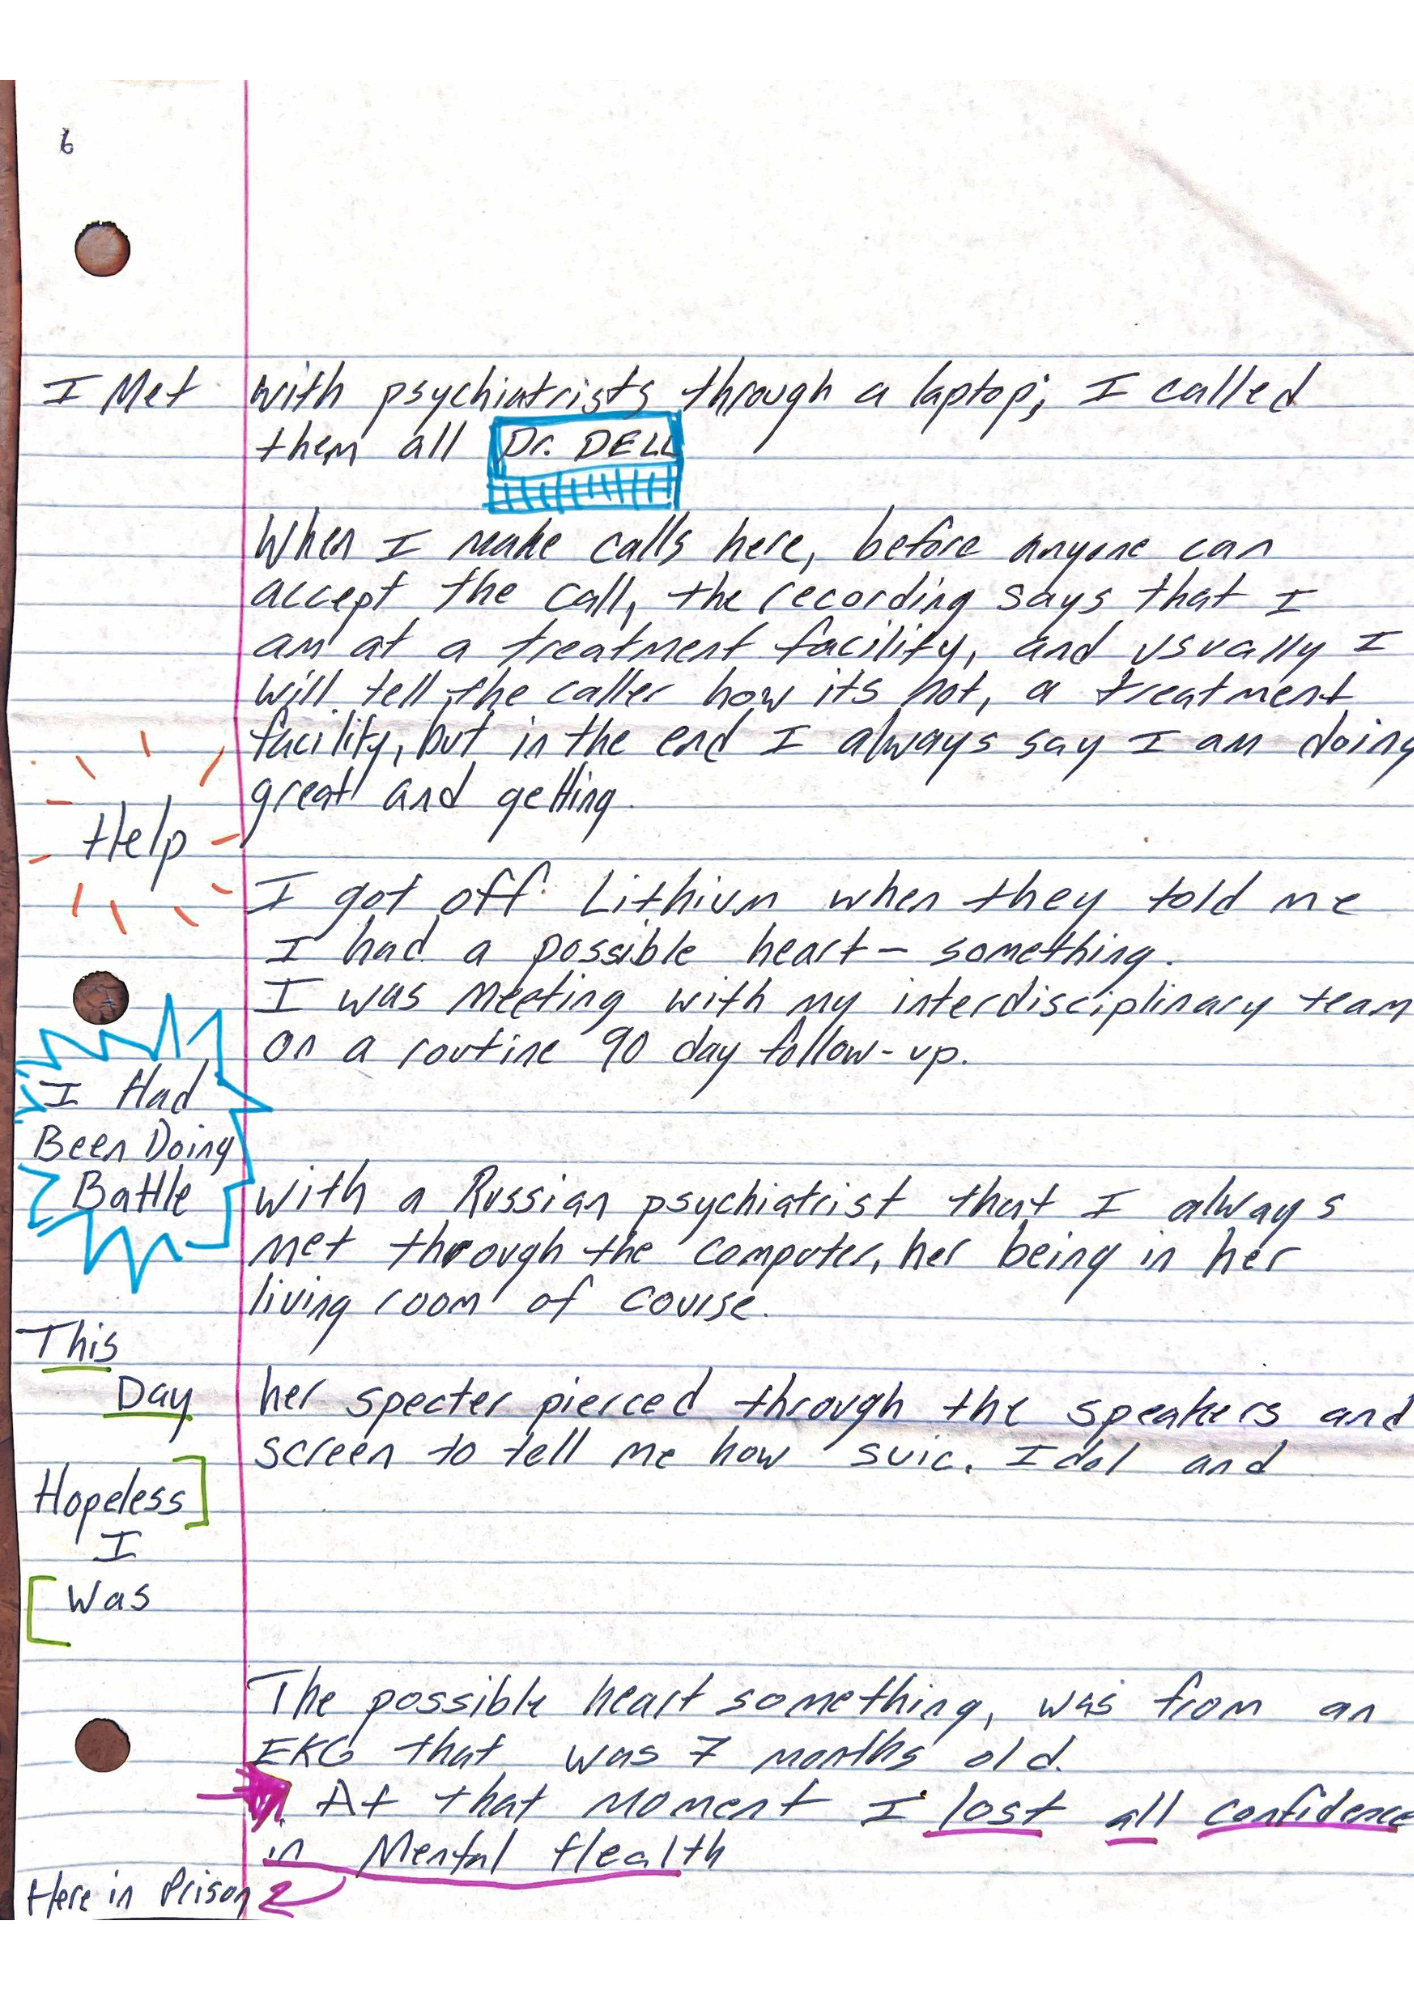 6
I Met with psychiatrists through a laptop; I called
them all Dr. DELL
When I make calls here, before anyone can
accept the call, the recording says that I
am at a treatment facility, and usually I
will tell the caller how its not, a treatment
facility, but in the end I always say I am doing
great and getting
Help
I got off Lithium when they told me
I had a possible heart- something.
I was meeting with my interdisciplinary team
on a routine 90 day follow-up.
I Had
Been Doing
Battle with a Russian psychiatrist that I always
met through the computer, her being in her
living room of course.
This
Day her specter pierced through the speakers and
screen to tell me how suic. Idol and
Hopeless
I
Was
The possible heart something, was from an
EKG that was 7 months old.
At that moment I lost all confidence
in Mental Health
Here in Prison